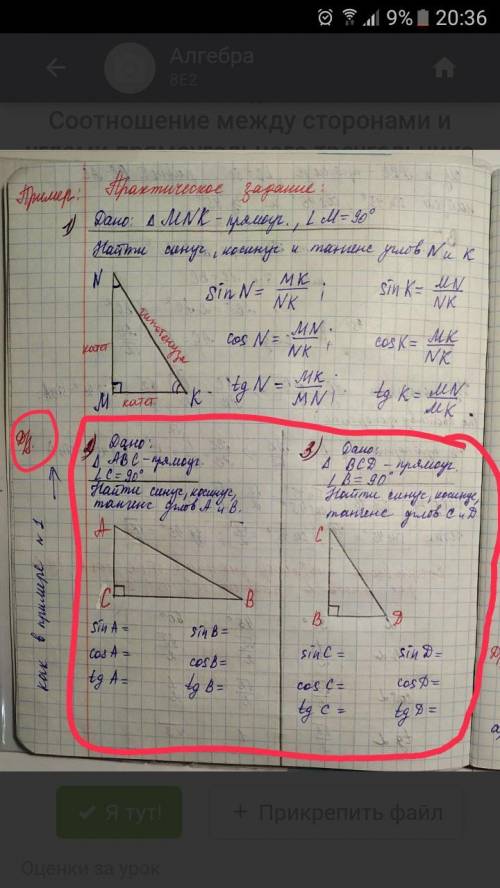 9% 20:36
Алгебра
8Е2
Соотношение между сторонами и
Пример: Практическое задание:
1) Дано: Δ MNK - прямоуг., ∠M=90°
Найти синус, косинус и тангенс углов N и K
N
M
K
катет
гипотенуза
катет
sin N = MK/NK ; sin K = MN/NK
cos N = MN/NK ; cos K = MK/NK
tg N = MK/MN ; tg K = MN/MK
Д/З
как в примере №1
2) Дано:
Δ ABC - прямоуг.
∠C=90°
Найти синус, косинус,
тангенс углов A и B.
A
C
B
sin A = sin B =
cos A = cos B =
tg A = tg B =
3) Дано:
Δ BCD - прямоуг.
∠B=90°
Найти синус, косинус,
тангенс углов C и D
C
B
D
sin C = sin D =
cos C = cos D =
tg C = tg D =
Я тут!
+ Прикрепить файл
Оценки за урок